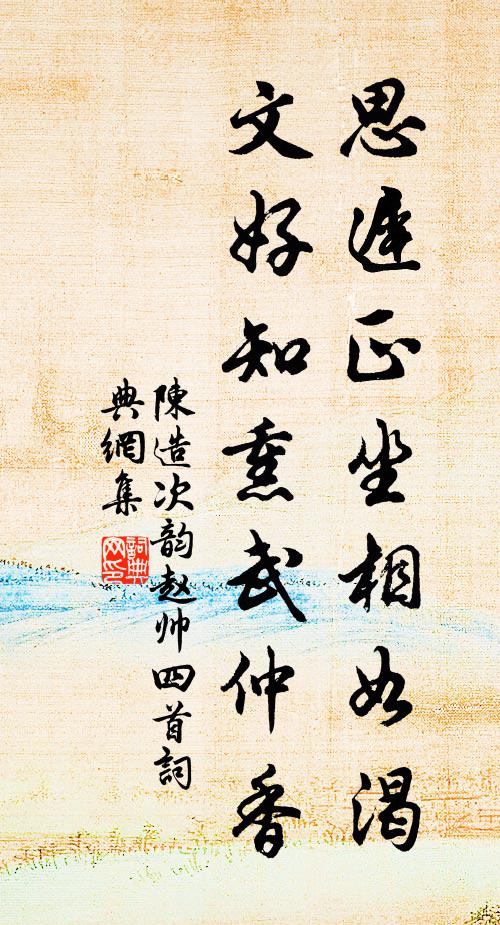 思遲正坐相如渴
文好知熏武仲香
陳造次韵赵帅四首詞
典網集
詞典
网印